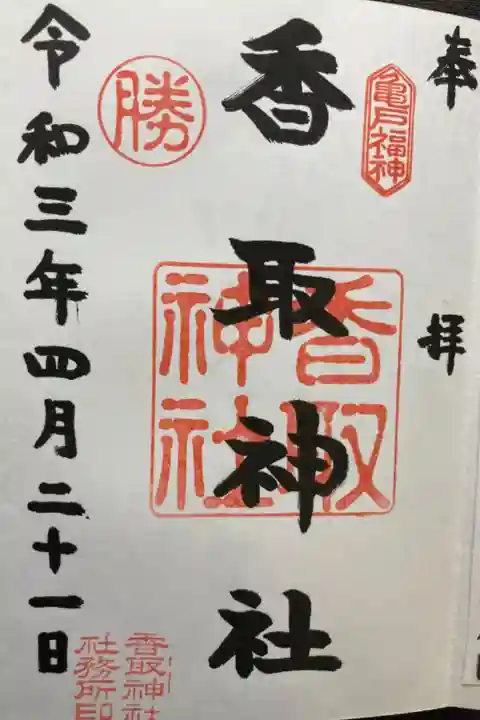 奉拝
亀戸福神
香取神社
香取神社
勝
令和三年四月二十一日
香取神社
社務所印